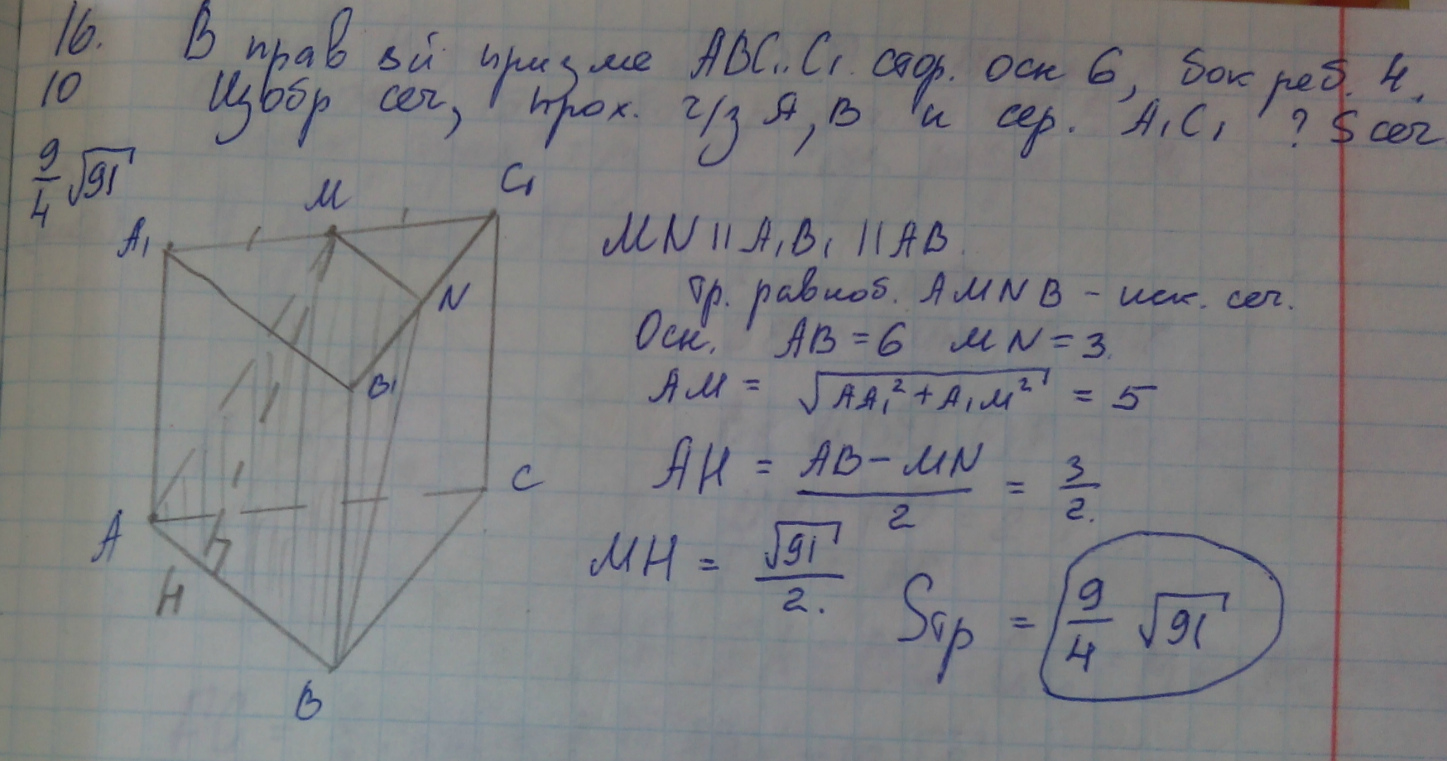 16. В прав 3й призме ABC..C₁. стор. осн 6, бок реб. 4.
10 Изобр сеч, прох. ч/з A, B и сер. A₁C₁ ? S сеч
9/4 √91
M C₁
A₁
N
B₁
C
A
H
B
MN || A₁B₁ || AB.
тр. равноб. AMNB - иск. сеч.
Осн. AB = 6 MN = 3.
AM = √(AA₁² + A₁M²) = 5
AH = (AB - MN)/2 = 3/2.
MH = √91/2.
Sтр = 9/4 √91